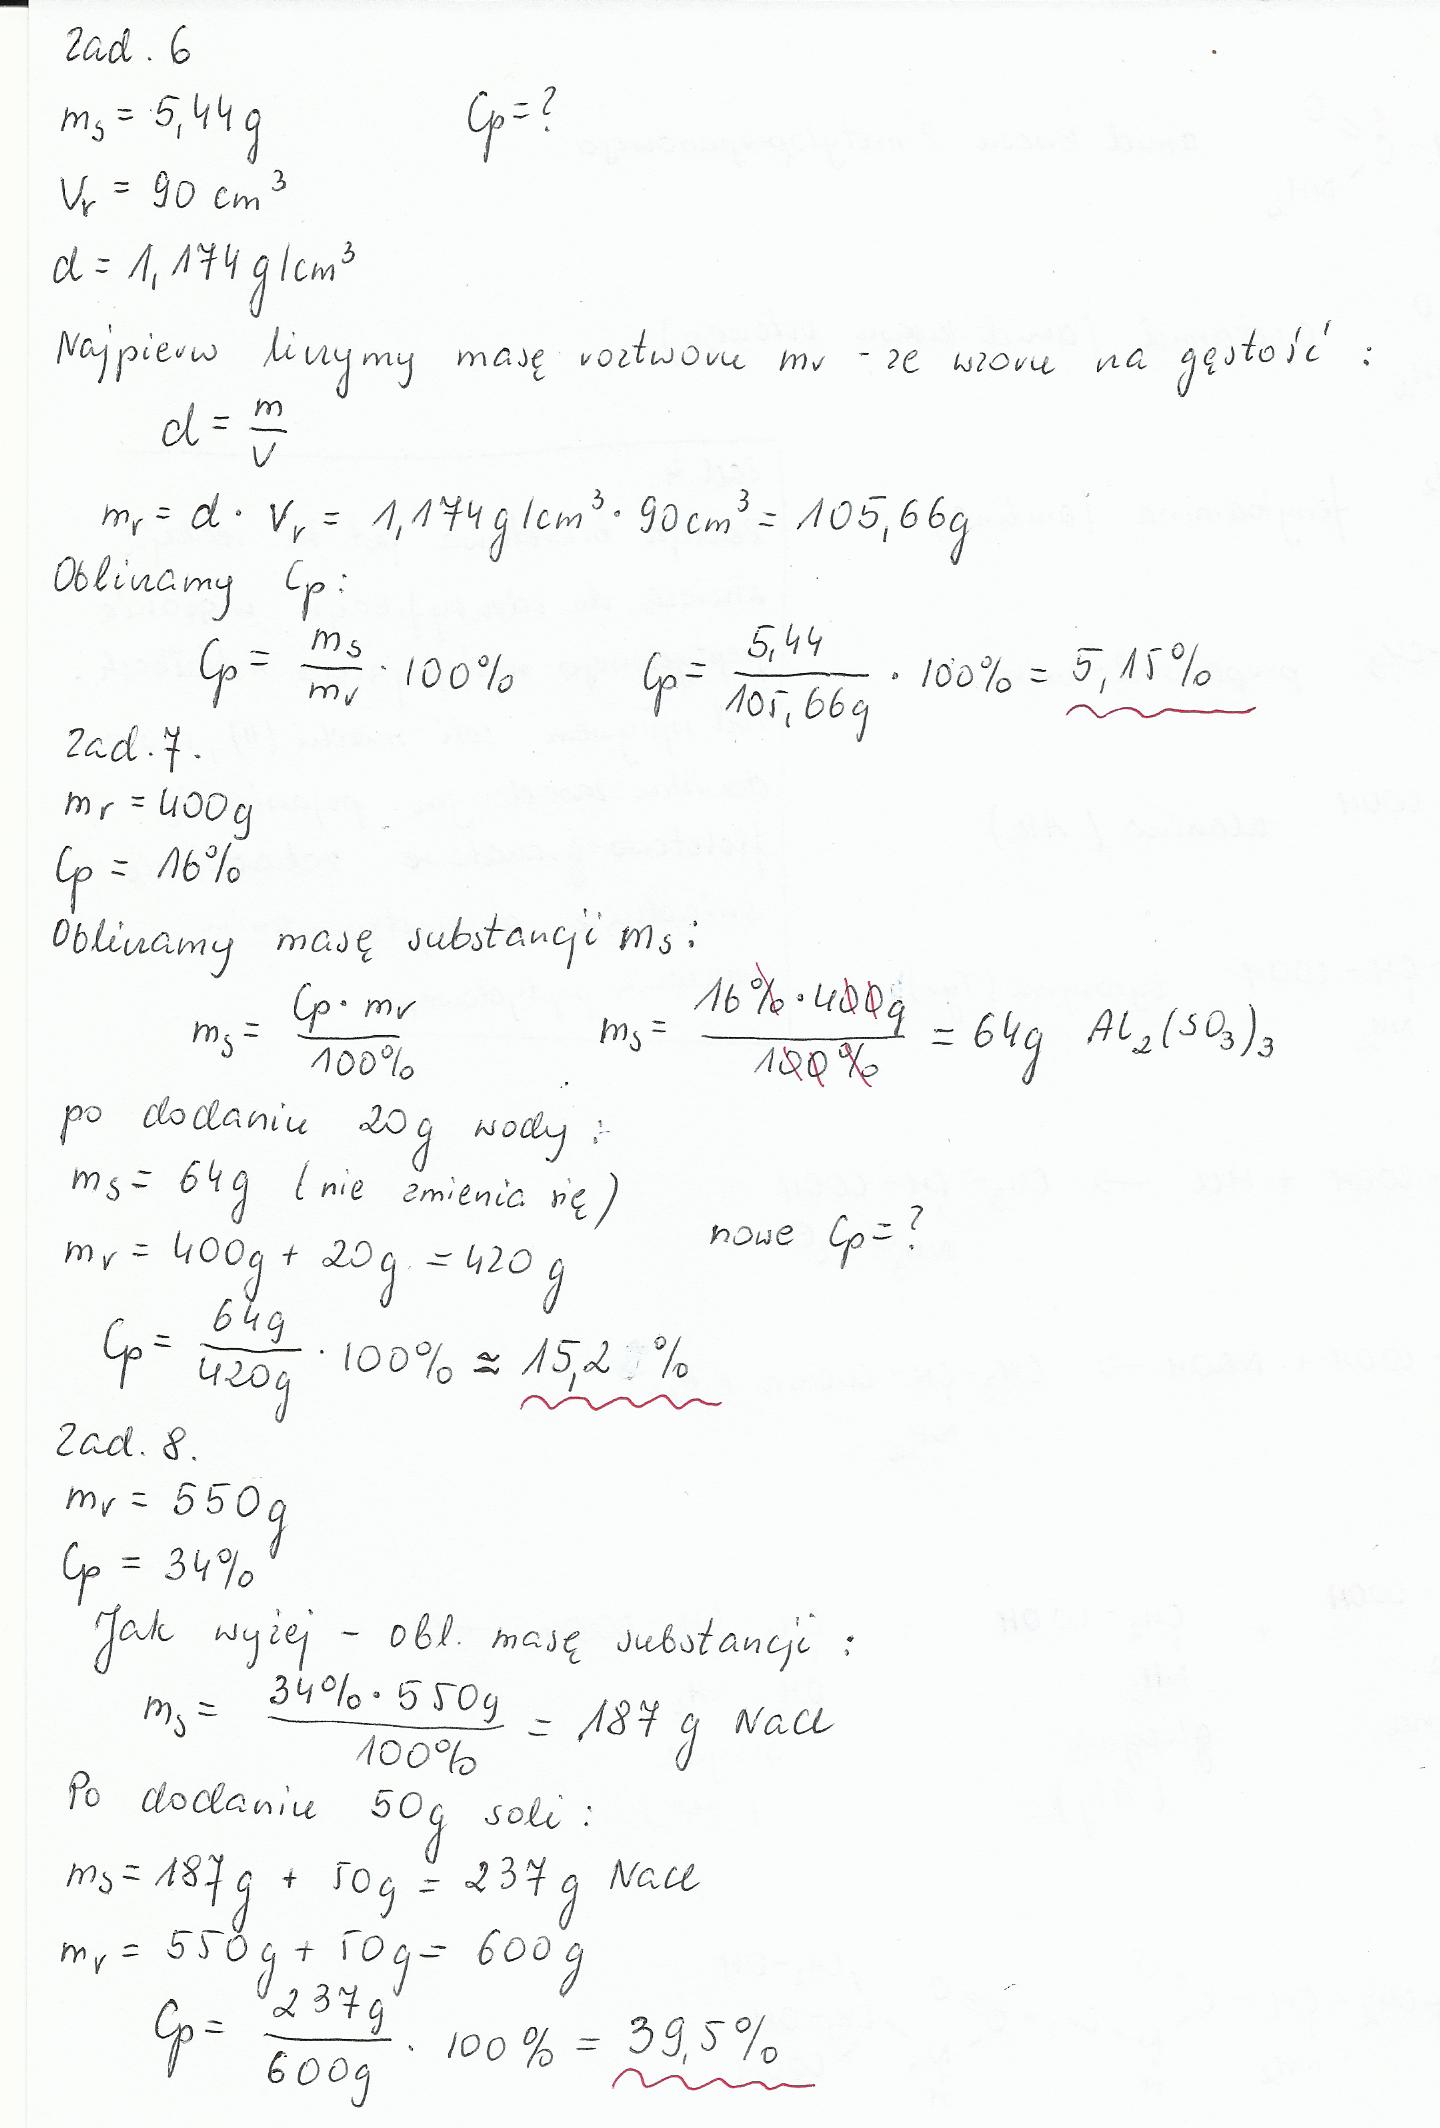 Zad. 6
ms = 5,44g Cp = ?
Vr = 90 cm³
d = 1,174 g/cm³
Najpierw liczymy masę roztworu mr - ze wzoru na gęstość :
d = m/V
mr = d · Vr = 1,174g/cm³ · 90cm³ = 105,66g
Obliczamy Cp:
Cp = ms/mr · 100% Cp = 5,44/105,66g · 100% = 5,15%
Zad. 7.
mr = 400g
Cp = 16%
Obliczamy masę substancji ms:
ms = Cp · mr/100% ms = 16% · 400g/100% = 64g Al₂(SO₃)₃
po dodaniu 20g wody :
ms = 64g (nie zmienia się)
mr = 400g + 20g = 420g nowe Cp = ?
Cp = 64g/420g · 100% ≈ 15,2 %
Zad. 8.
mr = 550g
Cp = 34%
Jak wyżej - obl. masę substancji :
ms = 34% · 550g/100% = 187 g NaCl
Po dodaniu 50g soli :
ms = 187g + 50g = 237g NaCl
mr = 550g + 50g = 600g
Cp = 237g/600g · 100% = 39,5%